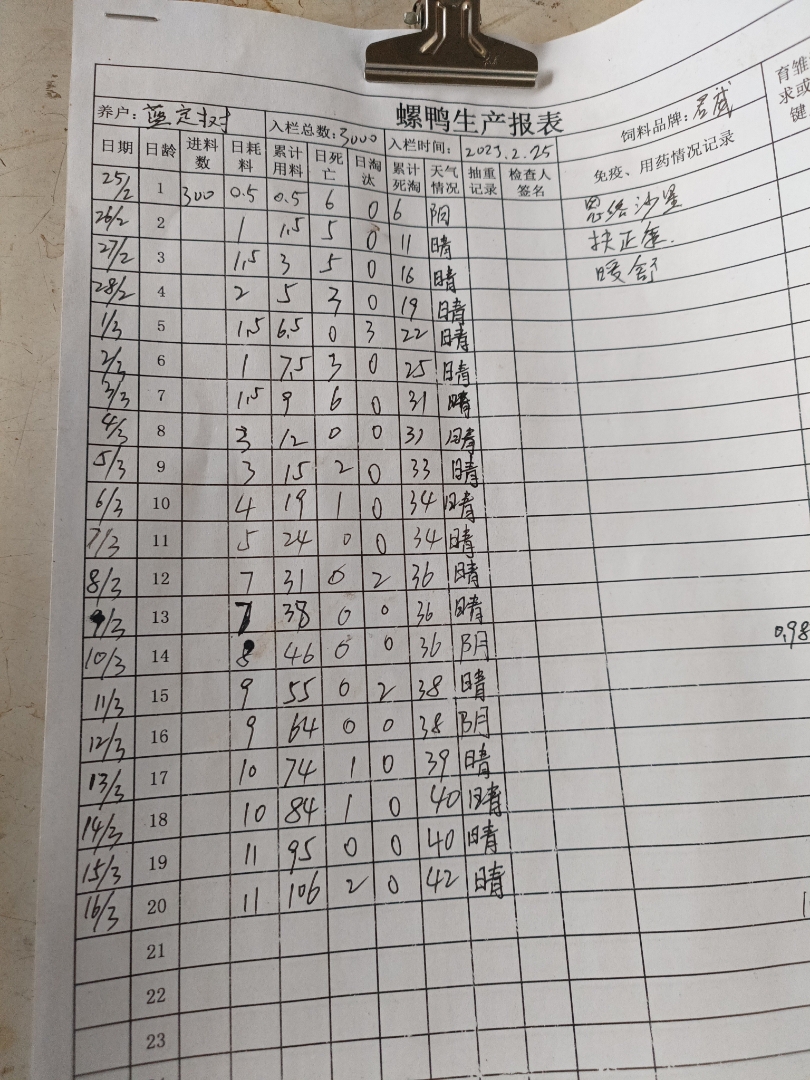 螺鸭生产报表
养户: 蓝定树 入栏总数: 3000 入栏时间: 2023.2.25 饲料品牌:
日期 日龄 进料数 日耗料 累计用料 日死亡 日淘汰 累计死淘 天气情况 抽重记录 检查人签名 免疫、用药情况记录 育雏 求或 键
25/2 1 300 0.5 0.5 6 0 6 阴 恩络沙星
26/2 2 1 1.5 5 0 11 晴 扶正
27/2 3 1.5 3 5 0 16 晴 暖舒
28/2 4 2 5 3 0 19 晴
1/3 5 1.5 6.5 0 3 22 晴
2/3 6 1 7.5 3 0 25 晴
3/3 7 1.5 9 6 0 31 晴
4/3 8 3 12 0 0 31 晴
5/3 9 3 15 2 0 33 晴
6/3 10 4 19 1 0 34 晴
7/3 11 5 24 0 0 34 晴
8/3 12 7 31 0 2 36 晴
9/3 13 7 38 0 0 36 晴
10/3 14 8 46 0 0 36 阴 0.98
11/3 15 9 55 0 2 38 晴
12/3 16 9 64 0 0 38 阴
13/3 17 10 74 1 0 39 晴
14/3 18 10 84 1 0 40 晴
15/3 19 11 95 0 0 40 晴
16/3 20 11 106 2 0 42 晴
21
22
23